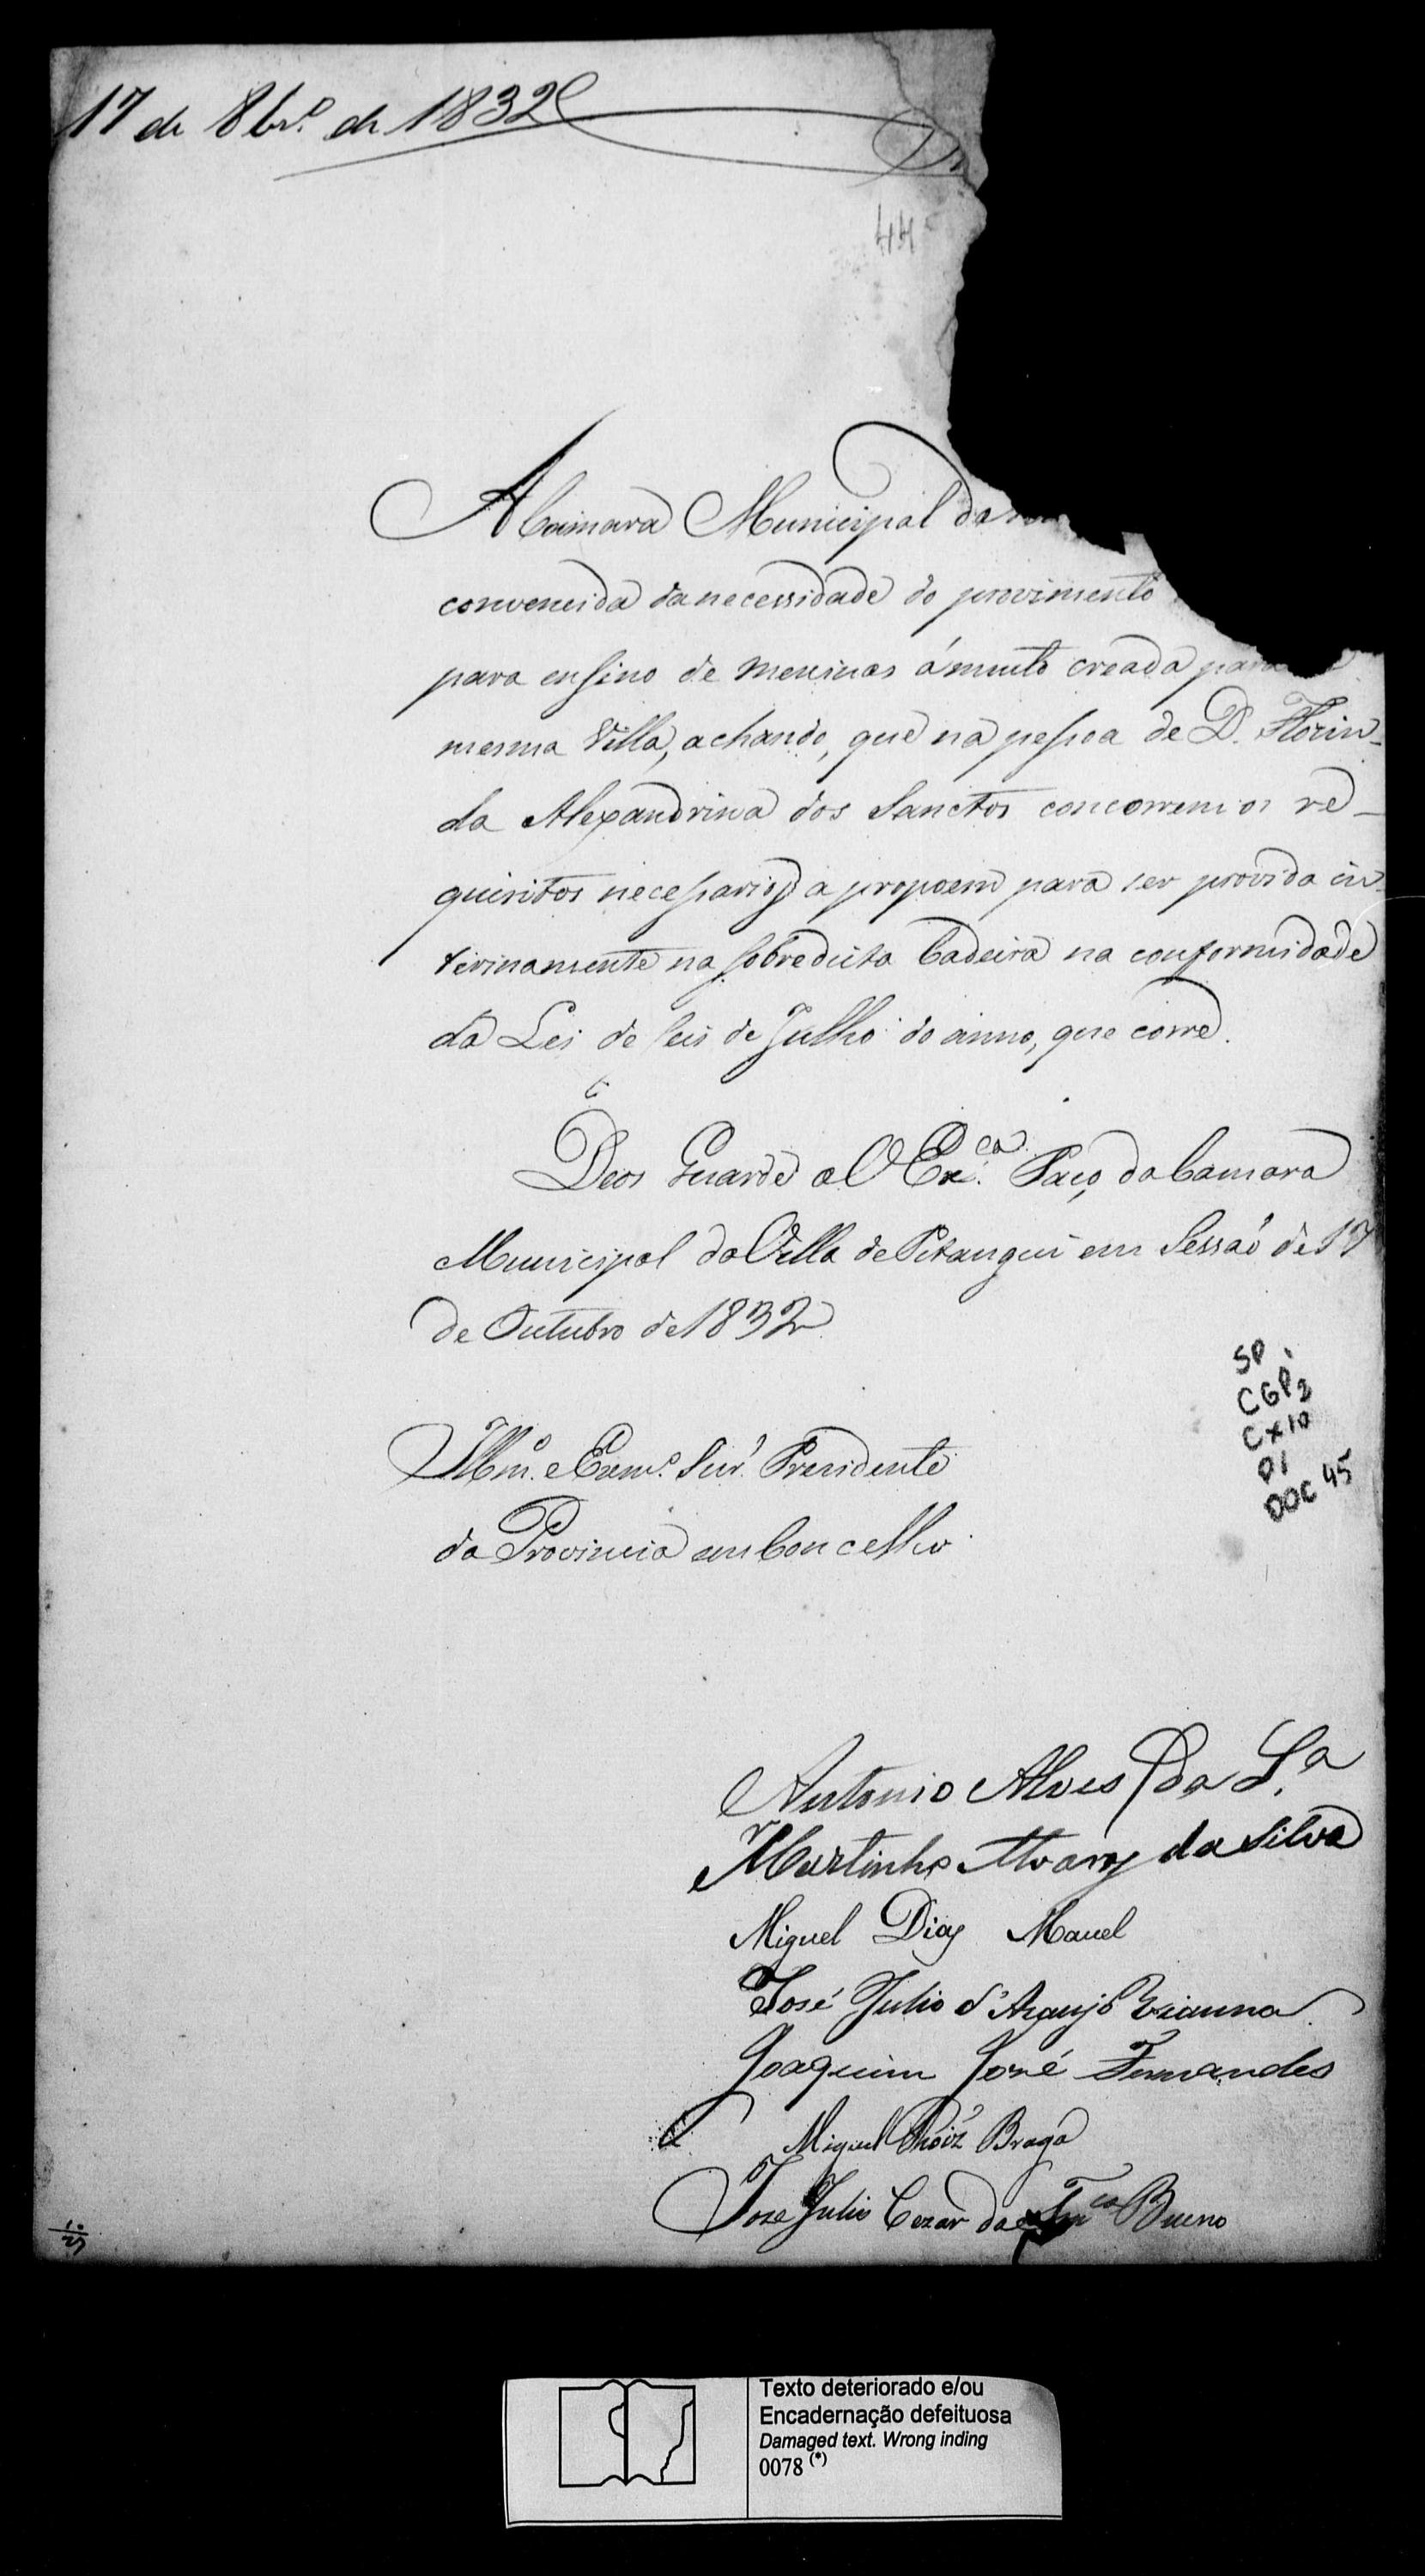 17 de 8br.º de 1832
44
A Camara Municipal da
convencida da necessidade do provimento
para ensino de meninas á muito creada para
mesma Villa, achando, que na pessoa de D. Florin-
da Alexandrina dos Sanctos concorrem os re-
quisitos necessarios, a propoem para ser provida in-
terinamente na sobredicta Cadeira na conformidade
da Lei de seis de Julho do anno, que corre.
Deos Guarde a V Ex.ca Paço da Camara
Municipal da Villa de Pitangui em Sessaõ de 17
de Outubro de 1832
Illm.º e Exm.º Snr. Presidente
da Provincia em Concelho
SP
CGP2
CX10
01
DOC 45
Antonio Alves da S.a
Martinho Alvares da Silva
Miguel Dias Maciel
José Julio d'Araujo Vianna
Joaquim José Fernandes
Miguel Roiz Braga
Jose Julio Cezar da Bueno
Texto deteriorado e/ou
Encadernação defeituosa
Damaged text. Wrong inding
0078 (*)